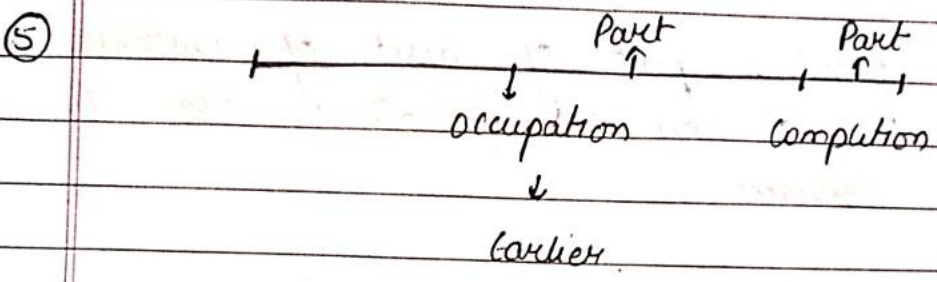 5
Part Part
Occupation Complition
Earlier